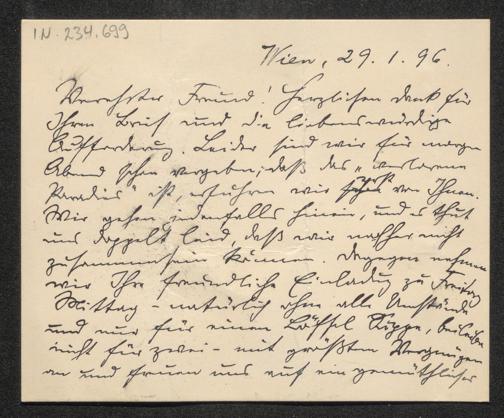 IN. 234.699
Wien, 29. 1. 96.
Verehrter Freund! Herzlichen Dank für
Ihren Brief und die liebenswürdige
Aufforderung. Leider sind wir für morgen
Abend schon vergeben; daß das „verlorene
Paradies" ist, erfuhren wir erst von Ihnen.
Wir gehen jedenfalls hinein, und es thut
uns doppelt leid, daß wir nachher nicht
zusammensein können. Dagegen nehmen
wir Ihre freundliche Einladung zu Freitag
Mittag - natürlich ohne alle Umstände
und nur für einen Löffel Suppe, beileibe
nicht für zwei - mit größtem Vergnügen
an und freuen uns auf ein gemüthliches